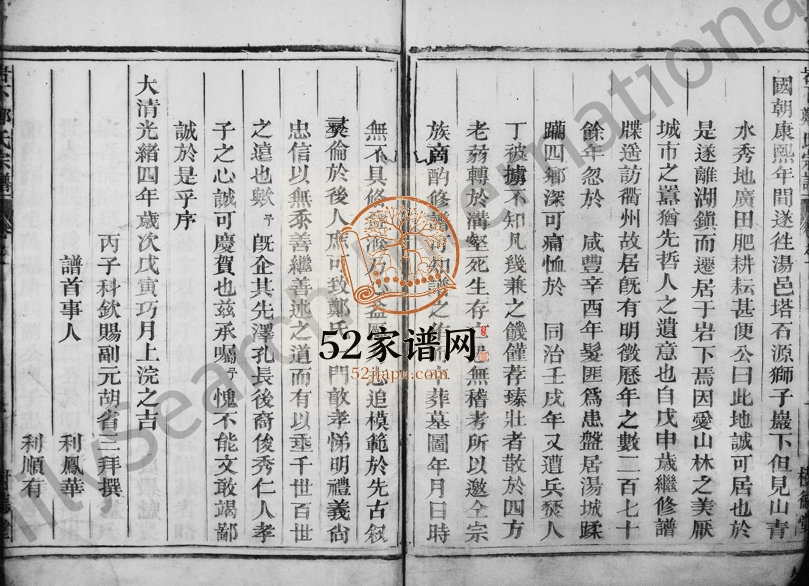 國朝康熙年間遂徙湯邑塔石源獅子巖下但見山青
水秀地廣田肥耕耘甚便公曰此地誠可居也於
是遂離湖鎮而遷居于岩下焉因愛山林之美厭
城市之囂猶先哲人之遺意也自戊申歲繼修譜
牒迄訪衢州故居旣有明徵歷年之數二百七十
餘年忽於 咸豐辛酉年髮匪爲患盤居湯城蹂
躪四鄉深可痛恤於 同治壬戌年又遭兵燹人
丁被擄不知凡幾兼之饑饉荐臻壯者散於四方
老弱轉於溝壑死生存 無稽考所以邀仝宗
族商酌修 知 之 葬墓圖年月日時
無不具修 乃 益 追模範於先古叙
彛倫於後人庶可致鄭氏 門敢孝悌明禮義尙
忠信以無忝善繼善述之道而有以垂千世百世
之遠也歟予旣企其先澤孔長後裔俊秀仁人孝
子之心誠可慶賀也兹承囑予愧不能文敢竭鄙
誠於是乎序
大清光緖四年歲次戊寅巧月上浣之吉
丙子科欽賜副元胡省三拜撰
譜首事人
利鳳華
利順有
鄭氏宗譜
52家谱网
52jiapu.com
FamilySearch International